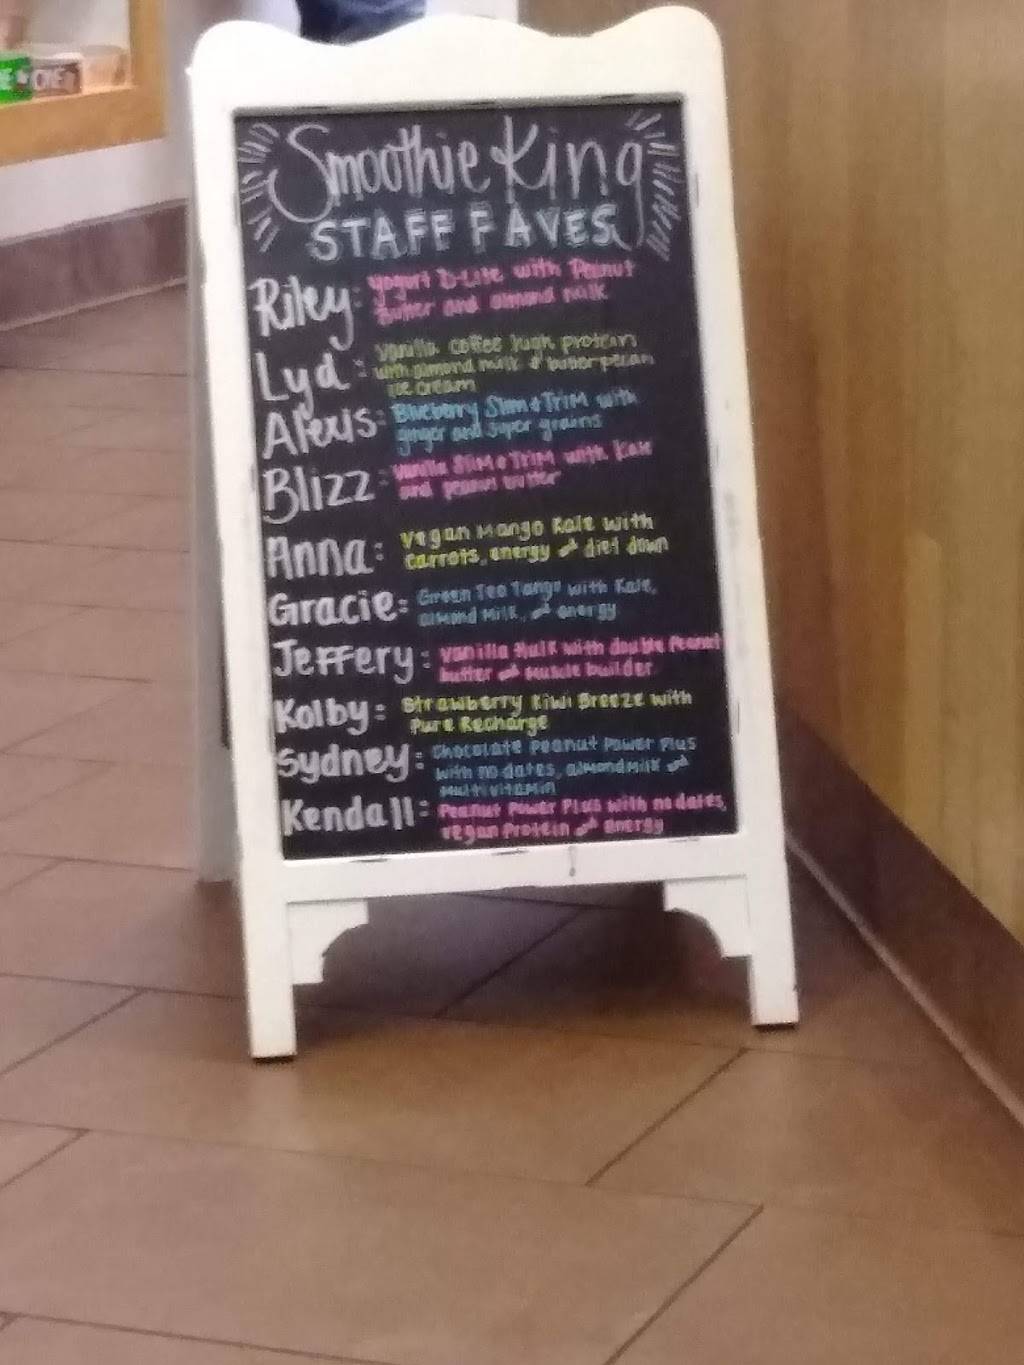 Smoothie King
STAFF FAVES
Riley: Yogurt D-Lite with Peanut
Butter and almond milk
Lyd: Vanilla coffee high protein
with almond milk & butter pecan
ice cream
Alexis: Blueberry Slim & Trim with
ginger and super grains
Blizz: Vanilla Slim & Trim with Kale
and peanut butter
Anna: Vegan Mango Kale with
carrots, energy and diet down
Gracie: Green Tea Tango with Kale,
almond Milk, and energy
Jeffery: Vanilla Hulk with double Peanut
butter and Muscle builder
Kolby: Strawberry Kiwi Breeze with
Pure Recharge
Sydney: Chocolate Peanut Power Plus
with no dates, almond Milk and
Multivitamin
Kendall: Peanut Power Plus with no dates,
vegan Protein and energy